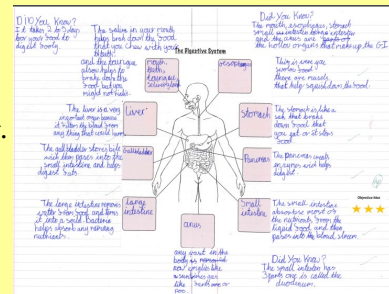 DiD You Know?
It takes 2 to 3 days
for your food to
digest fully.
The saliva in your mouth
helps break down the food
that you chew with your
teeth
and the tounge
also helps to
brake down the
food but you
might not
mouth,
teeth,
tounge,
The Digestive System
oesophagus
Did you Know?
The mouth, esophagus, stomach,
small intestine
and the anus are
the hollow organs that make up the GI
This is were you
swallow food
there are musels
that help squash down the food.
Liver
The liver is a very
important organ because
it filters the blood from
any thing that could harm
Stomach
The stomach is like a
sack that breaks
down food that
you get or it stors
food
Gallbladder
The gall bladder stores bile
wich then pases into the
small intestine and helps
digest fats.
Pancreas
The pancreas
enzymes wich helps
digest
large
intestine
The large intestine removes
water from food and turns
it into a solid. Bacteria
helps absorb any remaining
nutrients.
Small
intestine
The small intestine
absorbse most of
the nutrients from the
liquid food and then
pases into the blood stream.
Objective Met
anus
any wast in the
body is removed
now jingles like
sometimes
like
poo
Did You Know?
The small intestine has
3 parts one is called the
duodenum.